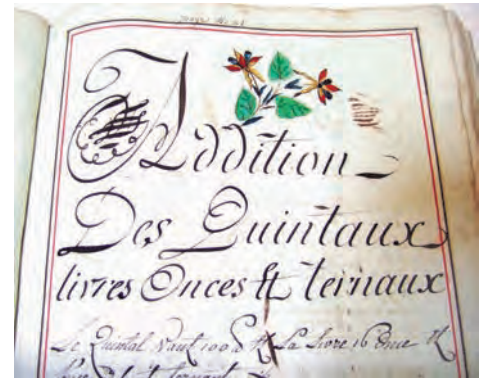 Addition
Des Quintaux
livres Onces & ternaux
Le Quintal Vaut 100 La livre 16 Once